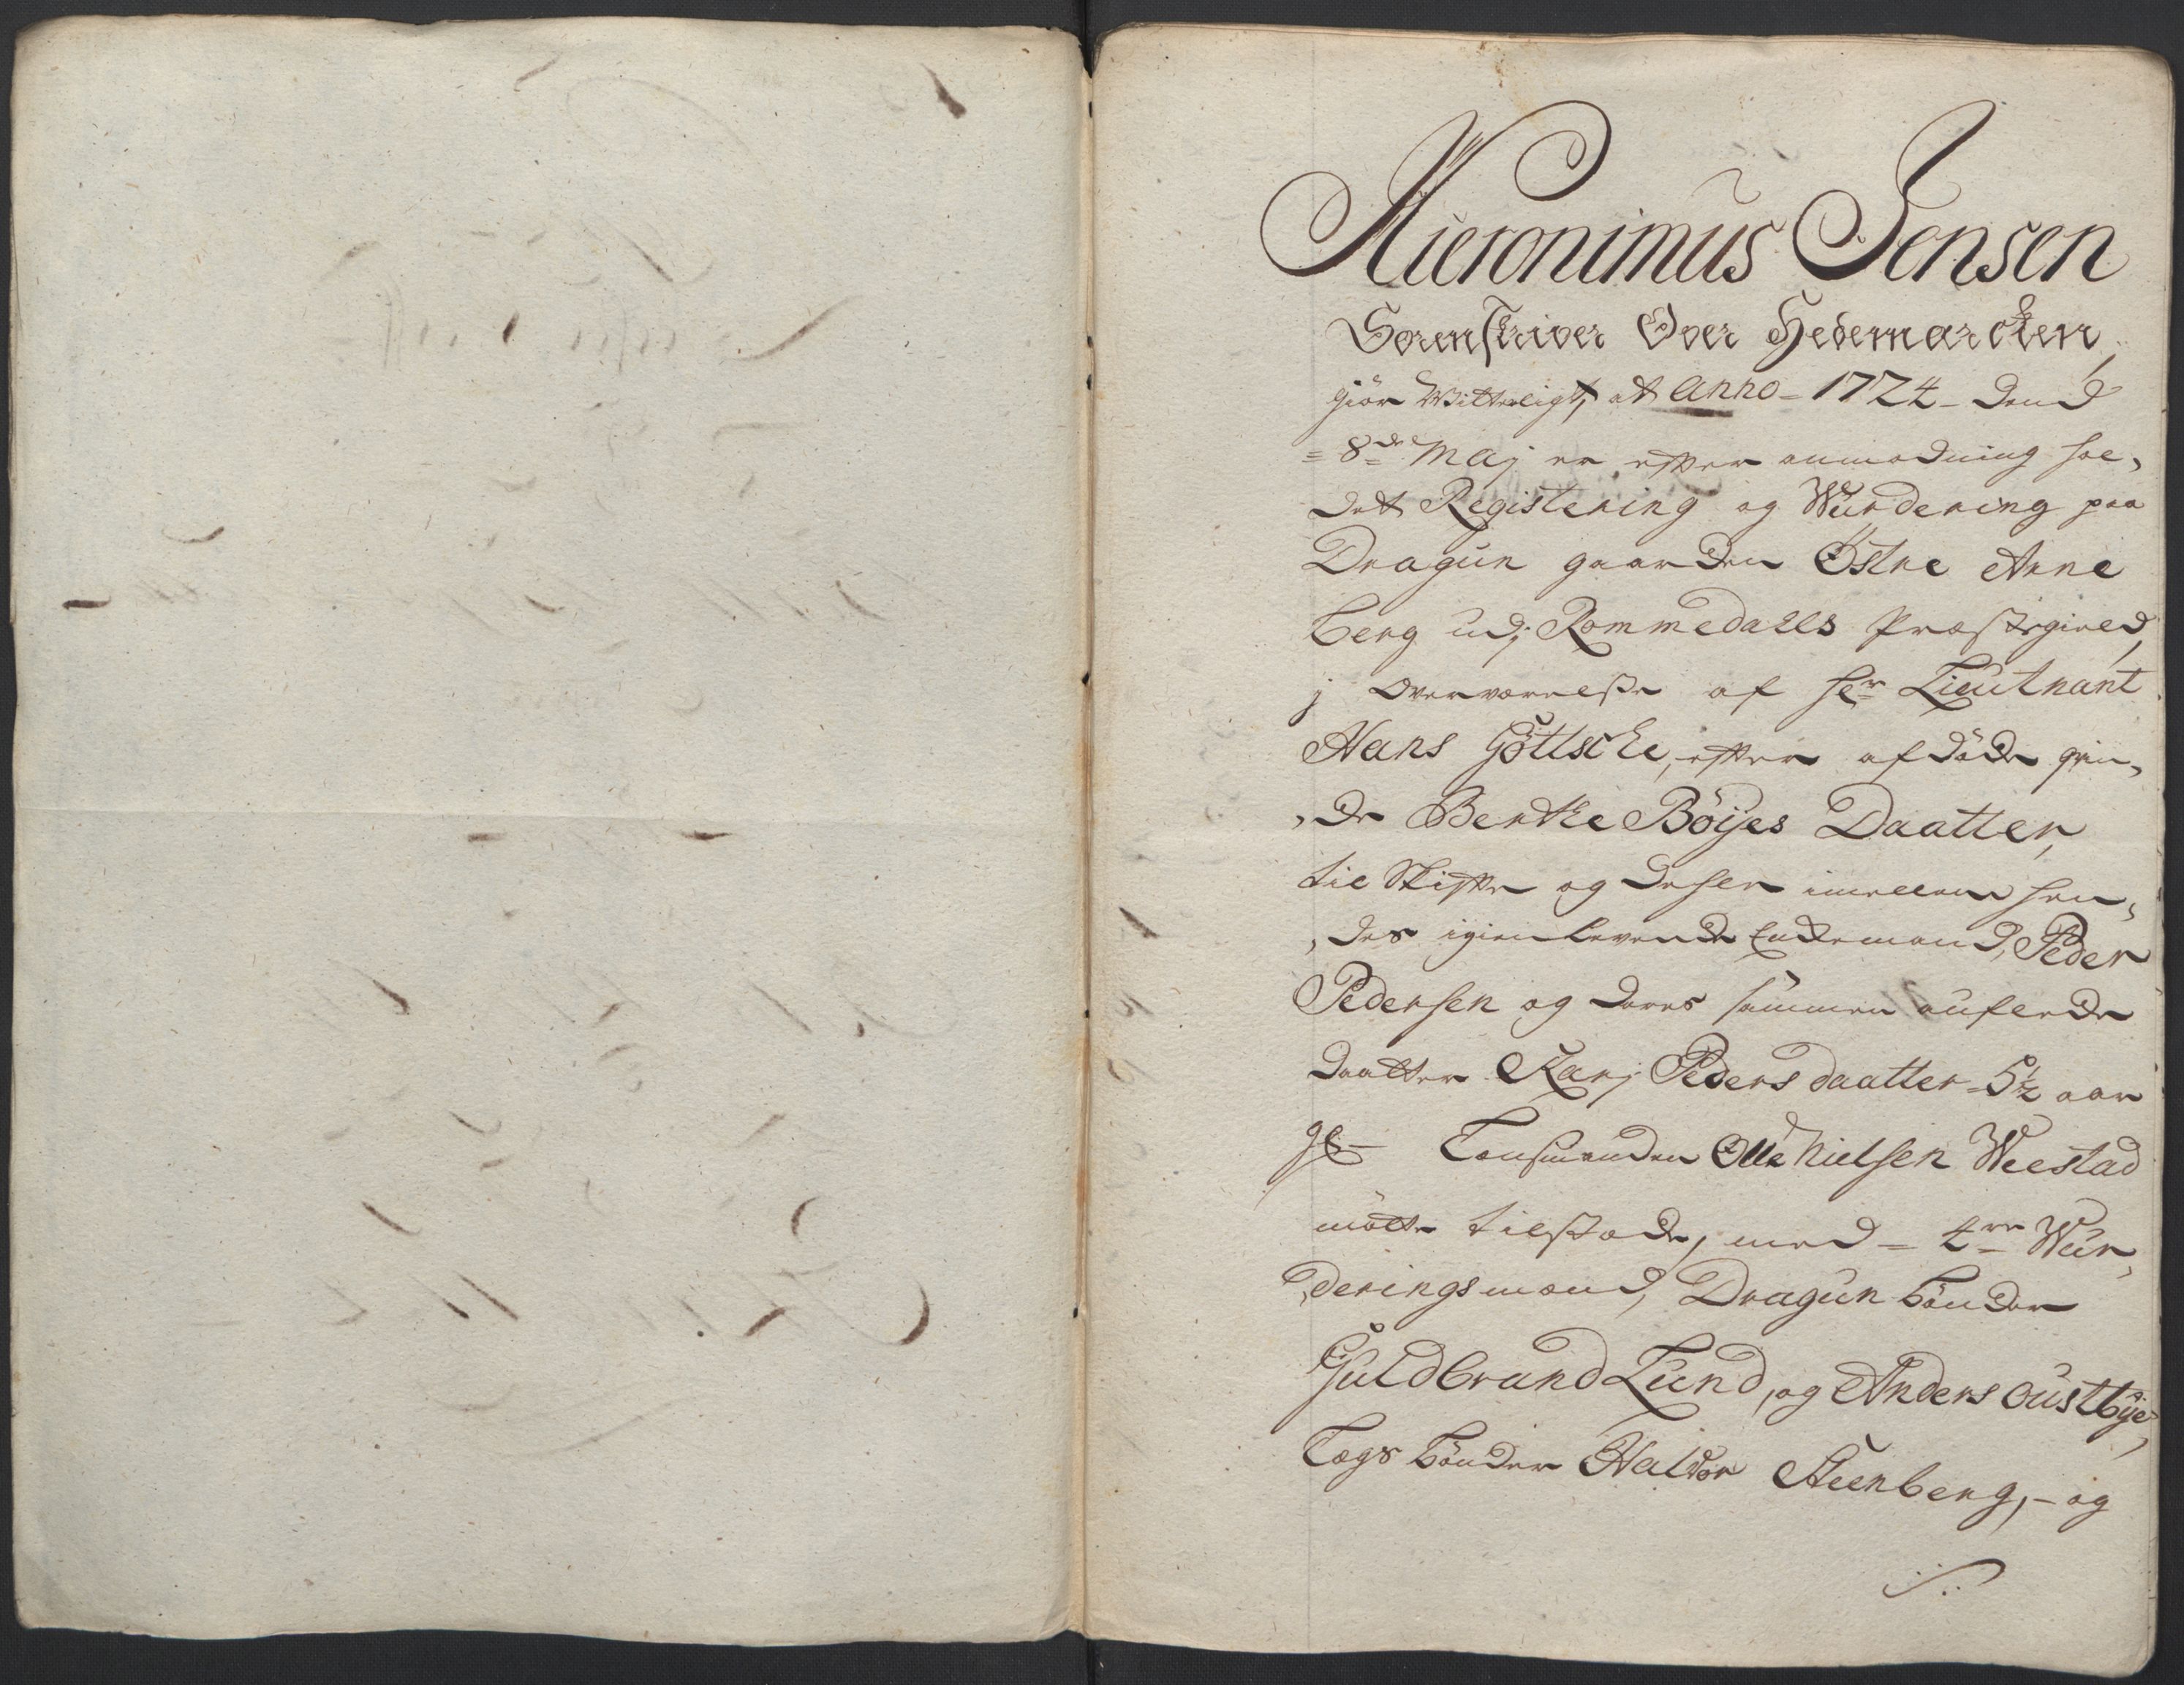 Hieronimus Jensen
Sorenskriver Over Hedemarcken,
giør Witterligt, at Anno - 1724 - Dend
= 8de Maj er efter anmodning hol,
det Registering og Wurdering paa
Dragun gaarden Østre Arne
berg udj Rommedalls Præstegield,
j Overværelse af hr Lieutnant
Hans Göttsche, efter afdøde qvin,
,de Berthe Böÿes Daatter,
til Skifte og deheles imellem hen,
,des igienlevende Enckemand, Peder
Pedersen og deres sammen auflede
daatter Karj Peders daatter - 5½ aar
gl - Lensmanden Olle Nielsen Weestad
mötte tilstæde, med = 4re Wur,
,derings mænd, Dragun bönder
Guldbrand Lund, og Anders Oustbÿe,
Legs bönder Halvor Steenberg, - og